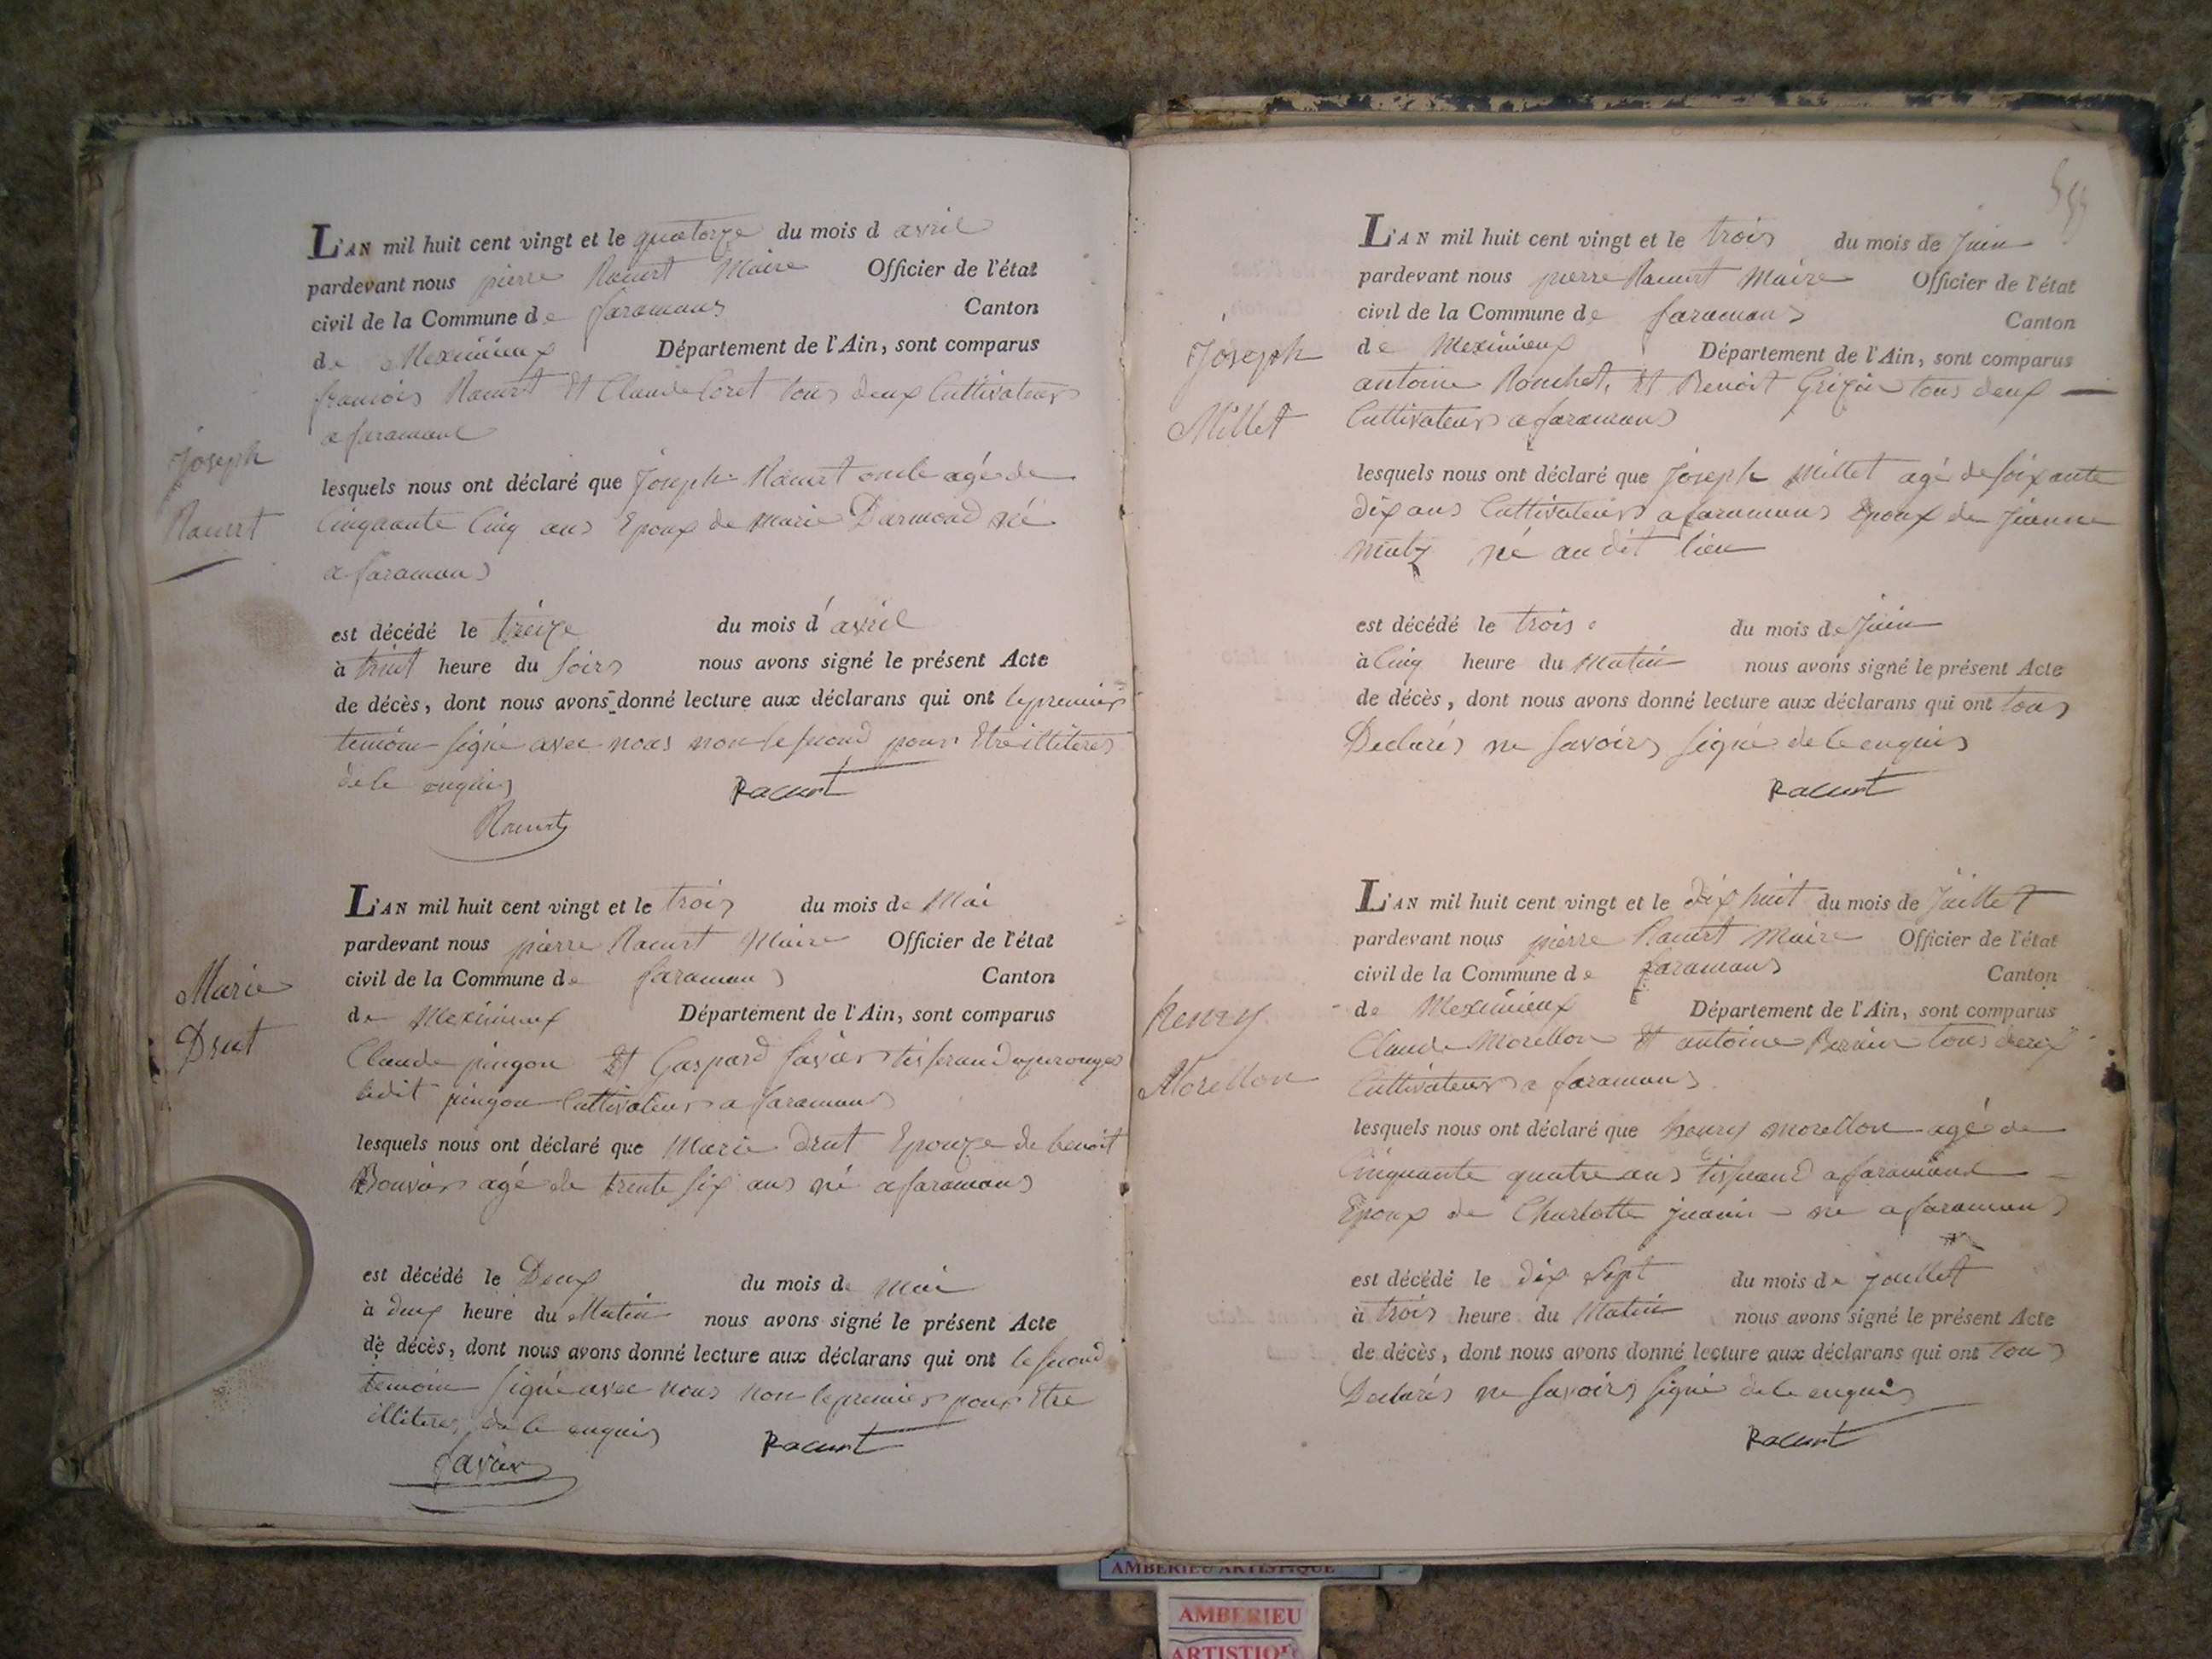 L'AN mil huit cent vingt et le quatorze du mois d avril
pardevant nous pierre Racurt Maire Officier de l'état
civil de la Commune de faramans Canton
de Meximieux Département de l'Ain, sont comparus
francois Racurt Et Claude Coret tous deux Cultivateurs
a faramans
Joseph
Racurt
lesquels nous ont déclaré que Joseph Racurt agé de
Cinquante Cinq ans Epoux de Marie Darmond né
a faramans
est décédé le treize du mois d'avril
à heure du soirs nous avons signé le présent Acte
de décès, dont nous avons donné lecture aux déclarans qui ont le premier
temoin signé avec nous non le second pour Etre illiteres
de ce enquis
Racurt
Racurt
L'AN mil huit cent vingt et le trois du mois de Mai
pardevant nous pierre Racurt Maire Officier de l'état
civil de la Commune de faramans Canton
de Meximieux Département de l'Ain, sont comparus
Marie
Drut
Claude pingon Et Gaspard favier tisserand a perouges
ledit pingon Cultivateur a faramans
lesquels nous ont déclaré que Marie Drut Epouze de benoit
Bouvier agé de trente six ans né a faramans
est décédé le Deux du mois de mai
à deux heure du Matin nous avons signé le présent Acte
de décès, dont nous avons donné lecture aux déclarans qui ont le second
temoin signé avec nous non le premier pour Etre
illiteres de ce enquis
Racurt
favier
L'AN mil huit cent vingt et le trois du mois de Juin
pardevant nous pierre Racurt Maire Officier de l'état
civil de la Commune de faramans Canton
de Meximieux Département de l'Ain, sont comparus
Joseph
Millet
antoine Et Benoit tous deux
Cultivateurs a faramans
lesquels nous ont déclaré que Joseph Millet agé de soixante
dix ans Cultivateurs a faramans Epoux de Jeanne
né au dit lieu
est décédé le trois du mois de Juin
à Cinq heure du Matin nous avons signé le présent Acte
de décès, dont nous avons donné lecture aux déclarans qui ont tous
Declarés ne savoirs signé de ce enquis
Racurt
L'AN mil huit cent vingt et le dix huit du mois de Juillet
pardevant nous pierre Racurt Maire Officier de l'état
civil de la Commune de faramans Canton
de Meximieux Département de l'Ain, sont comparus
henry
Morellon
Claude Morellon Et antoine Perrin tous deux
Cultivateurs a faramans
lesquels nous ont déclaré que henry morellon agé de
Cinquante quatre ans tisserand a faramans
Epoux de Charlotte né a faramans
est décédé le dix sept du mois de jouillet
à trois heure du Matin nous avons signé le présent Acte
de décès, dont nous avons donné lecture aux déclarans qui ont tous
Declarés ne savoirs signé de ce enquis
Racurt
AMBERIEU ARTISTIQUE
AMBERIEU